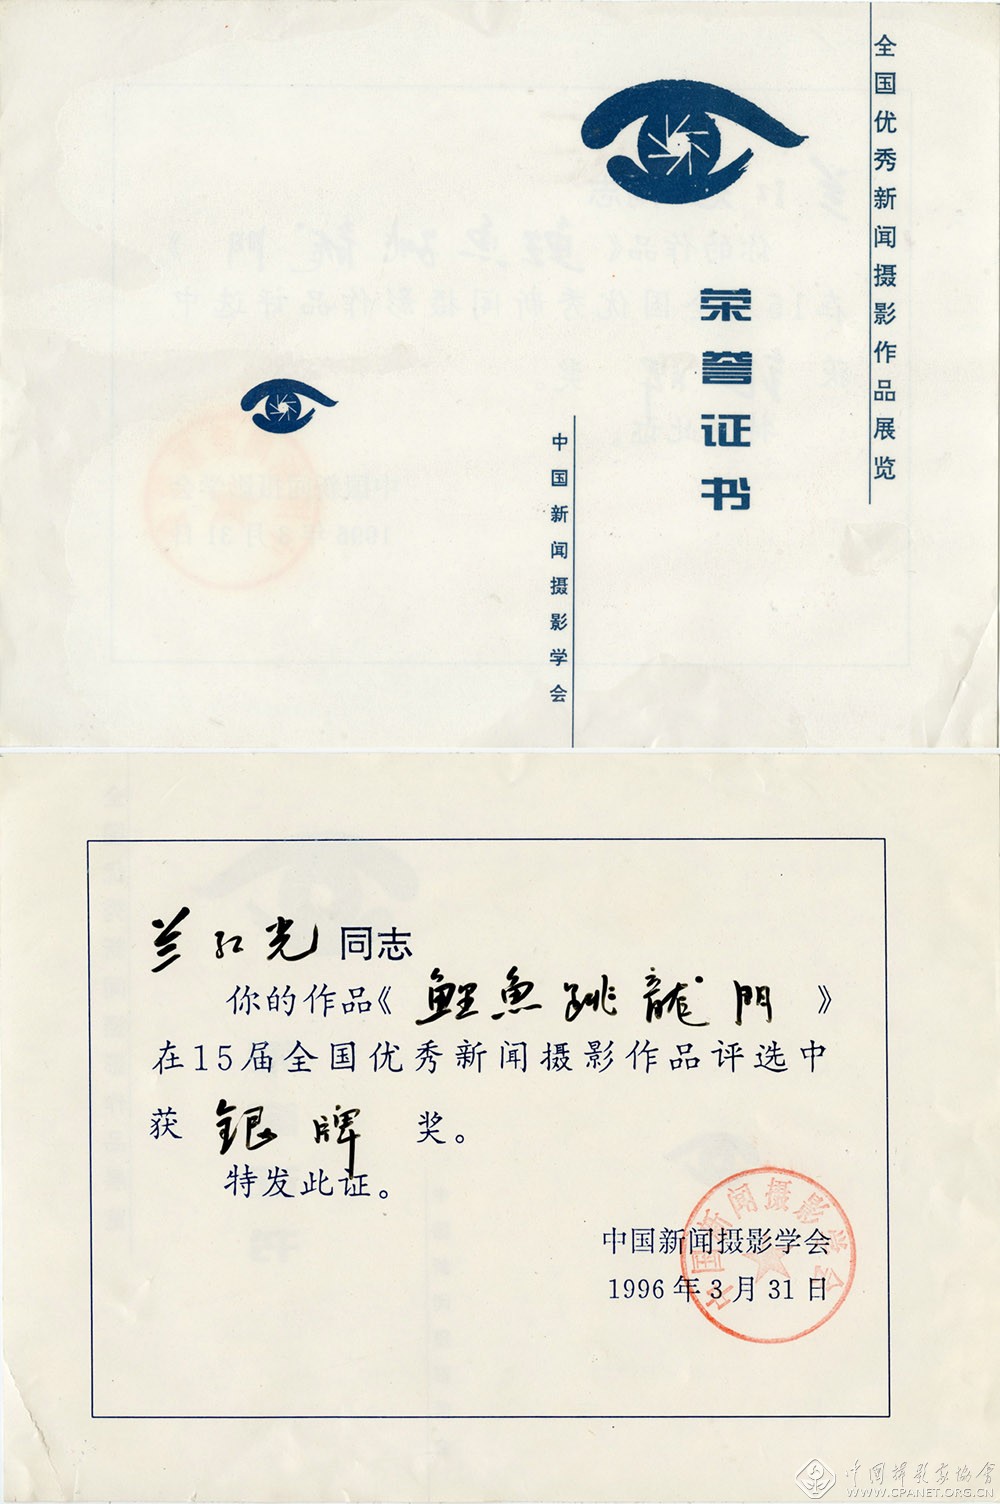 全国优秀新闻摄影作品展览
荣誉证书
中国新闻摄影学会
兰红光同志
你的作品《鲤魚跳龍門》
在15届全国优秀新闻摄影作品评选中
获银牌奖。
特发此证。
中国新闻摄影学会
1996年3月31日
中国新闻摄影学会
中国摄影家协会
WWW.CPANET.ORG.CN